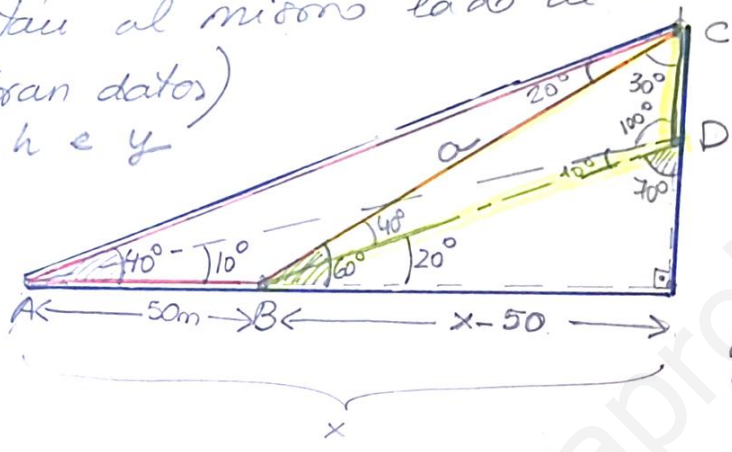 al mismo lado
datos)
h e y
C
20°
30°
a
100°
D
10°
70°
40°
40°
10°
60°
20°
A
50m
B
x-50
x